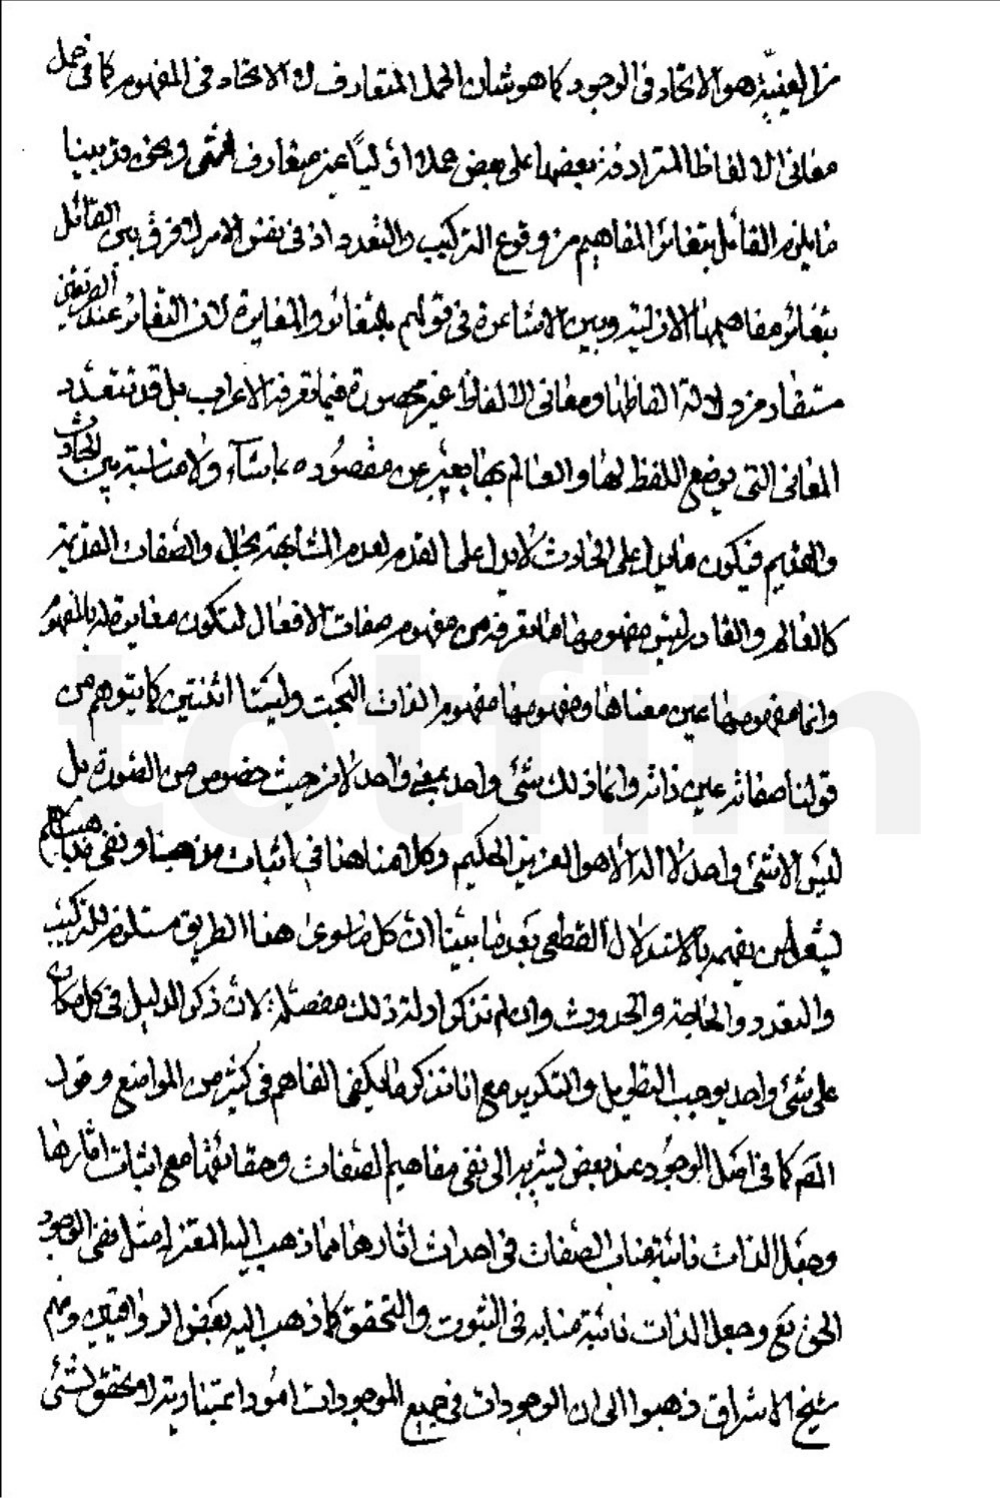 من العينية هو الاتحاد فى الوجود كما هو شان الحمل المتعارف لا الاتحاد فى المفهوم كما فى حمل
معانى الالفاظ المترادفة بعضها على بعض حملا اوليا غير متعارف انتهى ونحن قد بينا
ما يلزم القائل بتغائر المفاهيم من وقوع التركيب والتعدد اذ فى نفس الامر لا فرق بين القائل
بتغائر مفاهيمها الازلية وبين الاشاعرة فى قولهم بالتغائر والمغايرة لان التغائر عند الفريقين
مستفاد من دلالة الفاظها ومعانى الالفاظ غير محصورة فيما تعرفه الاعراب بل قد تتعدد
المعانى التى يوضع اللفظ لها والعالم بها يعبر عن مقصوده بما شاء ولا مناسبة بين الحادث
والقديم فيكون ما يدل على الحادث لا يدل على القدم لعدم المشابهة بحال والصفات القديمة
كالعالم والقادر ليس مفهومها ما تعرفه من مفهوم صفات الافعال لتكون مغايرة له بالمفهوم
وانما مفهومها عين معناها ومفهومها مفهوم الذات البحت وليستا اثنتين كما يتوهم من
قولنا صفاته عين ذاته وانما ذلك شئ واحد بمعنى واحد لا من حيث خصوص من الصورة بل
ليس الا شئ واحد لا اله الا هو العزيز الحكيم وكلامنا هنا فى اثبات مذهبنا ونفى مذاهبهم
ليس لمن يفهم بالاستدلال القطعى بعد ما بينا ان كل ما سوى هذا الطريق مستلزم للتركيب
والتعدد والحاجة والحدوث وان لم نذكر ادلة ذلك مفصلة لان ذكر الدليل فى كل مكان
على شئ واحد يوجب التطويل والتكرير مع انا نذكر ما يكفى الفاهم فى كثير من المواضع وقول
المص كما فى اصل الوجود عند بعض يشير به الى نفى مفاهيم الصفات وحقائقها مع اثبات اثارها
وجعل الذات نائبة مناب الصفات فى احداث اثارها مما ذهب اليه المعتزلة مثل نفى الوجود
الحق تع وجعل الذات نائبة منابه فى الثبوت والتحقق كما ذهب اليه بعض الرواقيين ومنهم
شيخ الاشراق ذهبوا الى ان الوجودات فى جميع الموجودات امور اعتبارية لا محقق لشئ